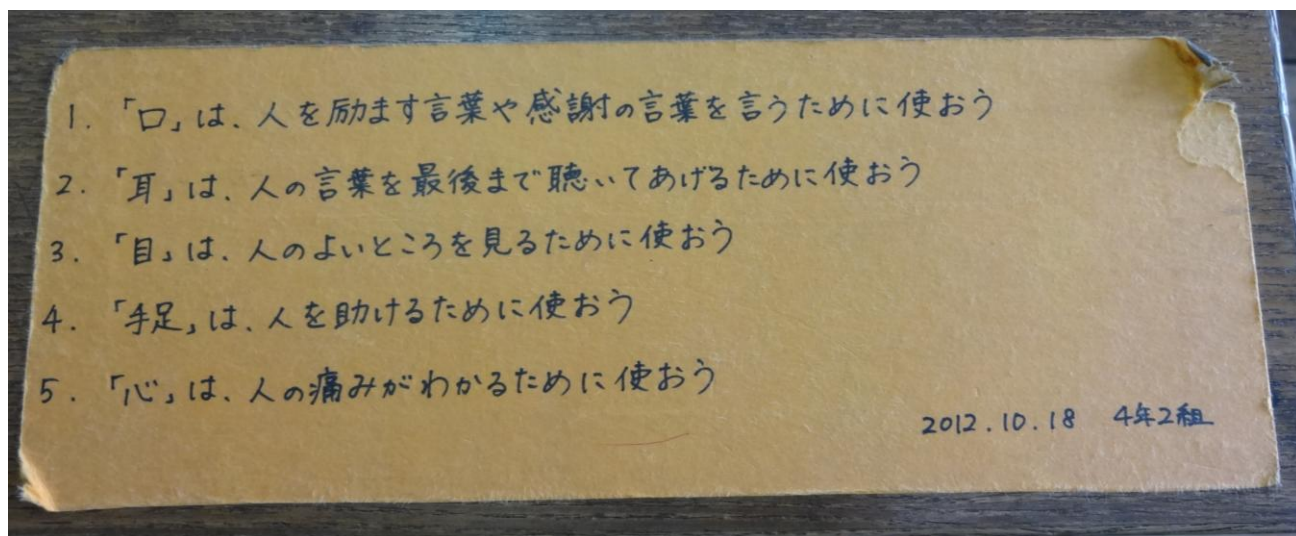 1. 「口」は、人を励ます言葉や感謝の言葉を言うために使おう
2. 「耳」は、人の言葉を最後まで聴いてあげるために使おう
3. 「目」は、人のよいところを見るために使おう
4. 「手足」は、人を助けるために使おう
5. 「心」は、人の痛みがわかるために使おう
2012.10.18 4年2組